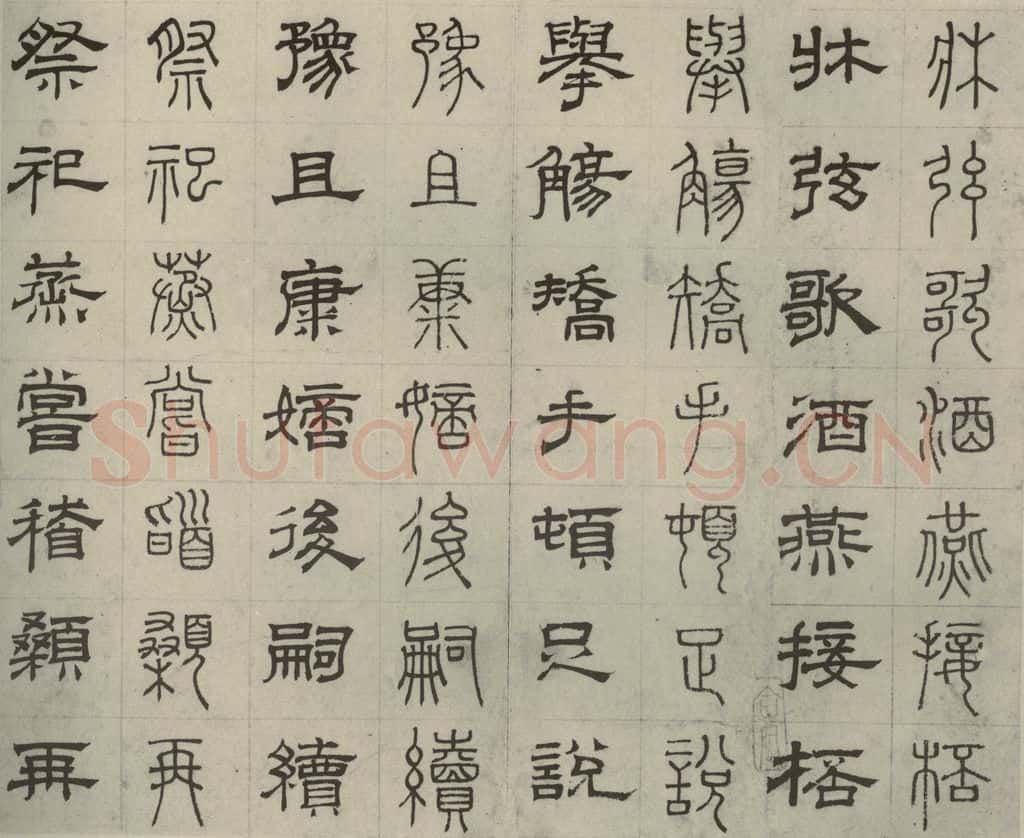 牀弦歌酒燕接桮
牀弦歌酒燕接桮
舉觴矯手頓足說
舉觴矯手頓足說
豫且康嫡後嗣續
豫且康嫡後嗣續
祭祀蒸嘗稽顙再
祭祀蒸嘗稽顙再
Shufawang.CN